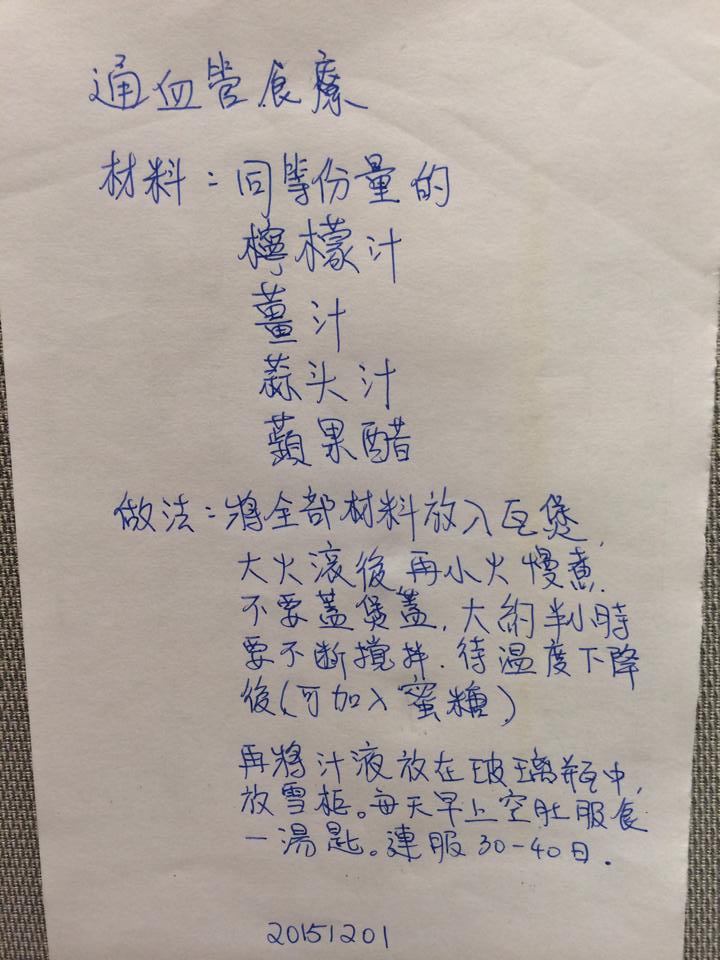 通血管食療
材料：同等份量的
檸檬汁
薑汁
蒜头汁
蘋果醋
做法：將全部材料放入瓦煲,
大火滾後,再小火慢煮.
不要蓋煲蓋,大約半小時
要不断攪拌.待温度下降
後(可加入蜜糖)
再將汁液放在玻璃瓶中,
放雪柜。每天早上空肚服食
一湯匙。連服30-40日.
20151201